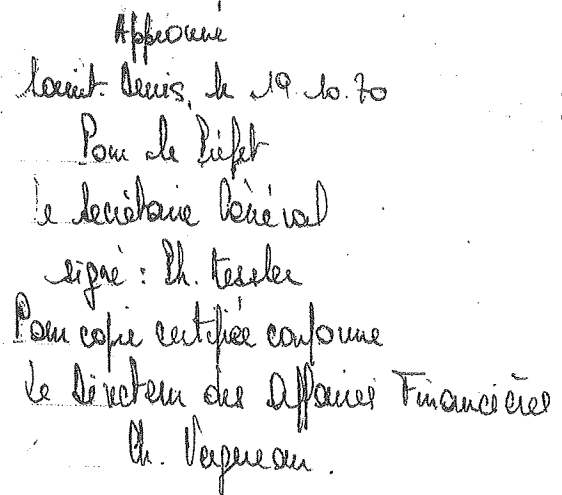 Approuvé
Saint-Denis, le 19.10.70
Pour le Préfet
Le Secrétaire Général
signé : Ph. Kessler
Pour copie certifiée conforme
Le Directeur des Affaires Financières
Ch. Vergneau.